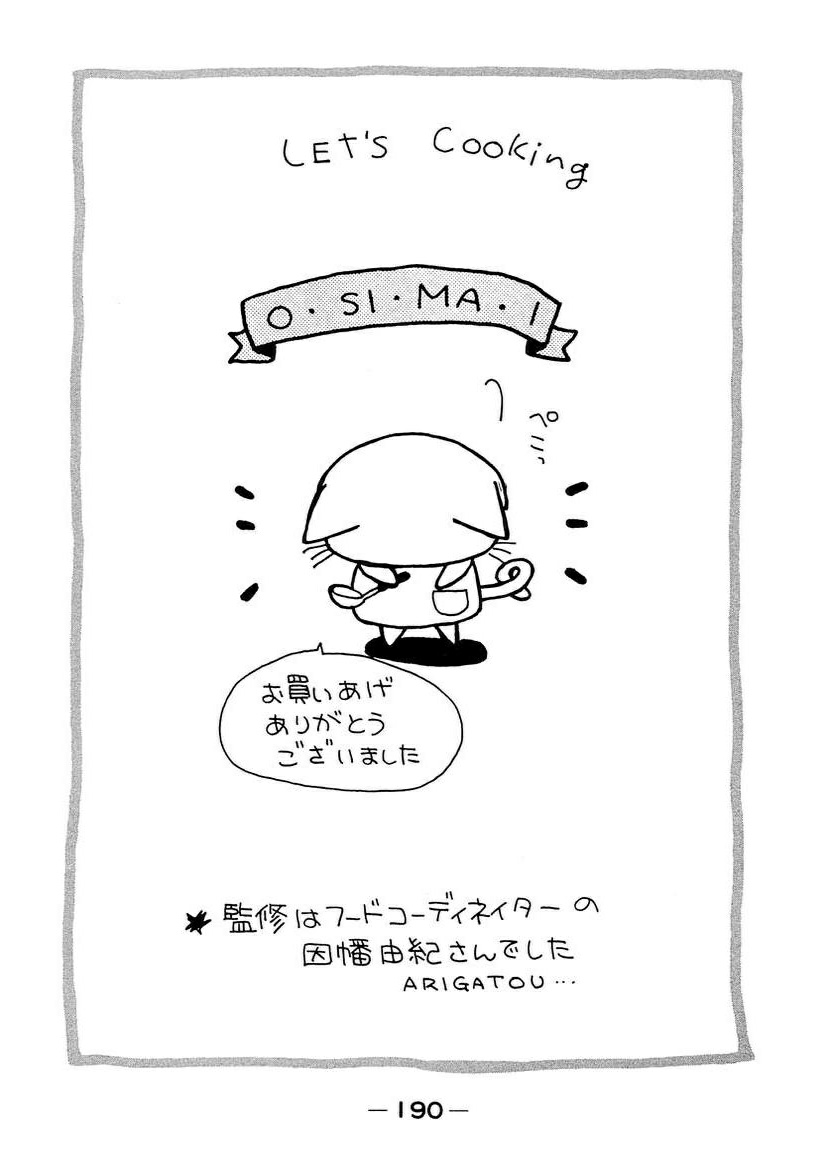 LET'S Cooking
O・SI・MA・I
ペミ、
お買いあげ
ありがとう
ございました
★監修はフードコーディネイターの
因幡由紀さんでした
ARIGATOU…
—190—